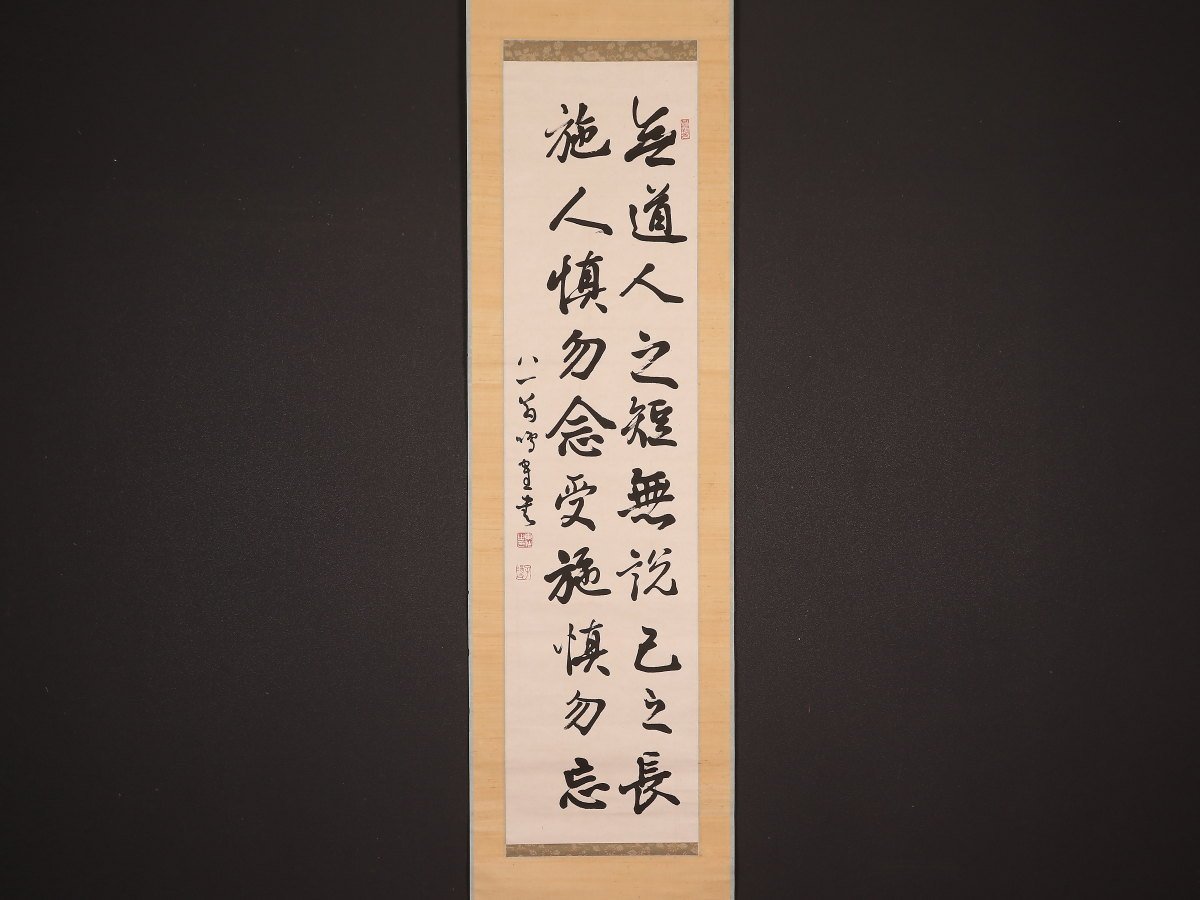 無道人之短無説己之長
施人慎勿念受施慎勿忘
八一翁鳴堂書